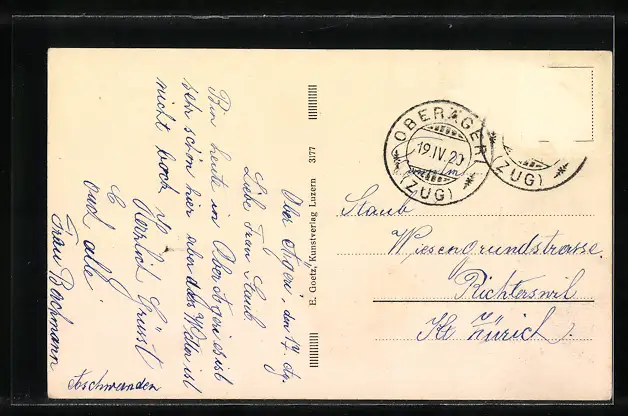 Ober Ägeri, den 17. Ap.
Liebe Frau Staub
Bin heute in Ober Aegeri es ist
sehr schön hier aber das Wetter ist
nicht hoch
Herzlich Grüsst
E
und alle.
Frau Bachmann
Aschwanden
E. Goetz, Kunstverlag Luzern 3177
OBERÄGERI
19.IV.20
(ZUG)
(ZUG)
Staub
Wiesengrundstrasse.
Richterswil
Kt Zürich